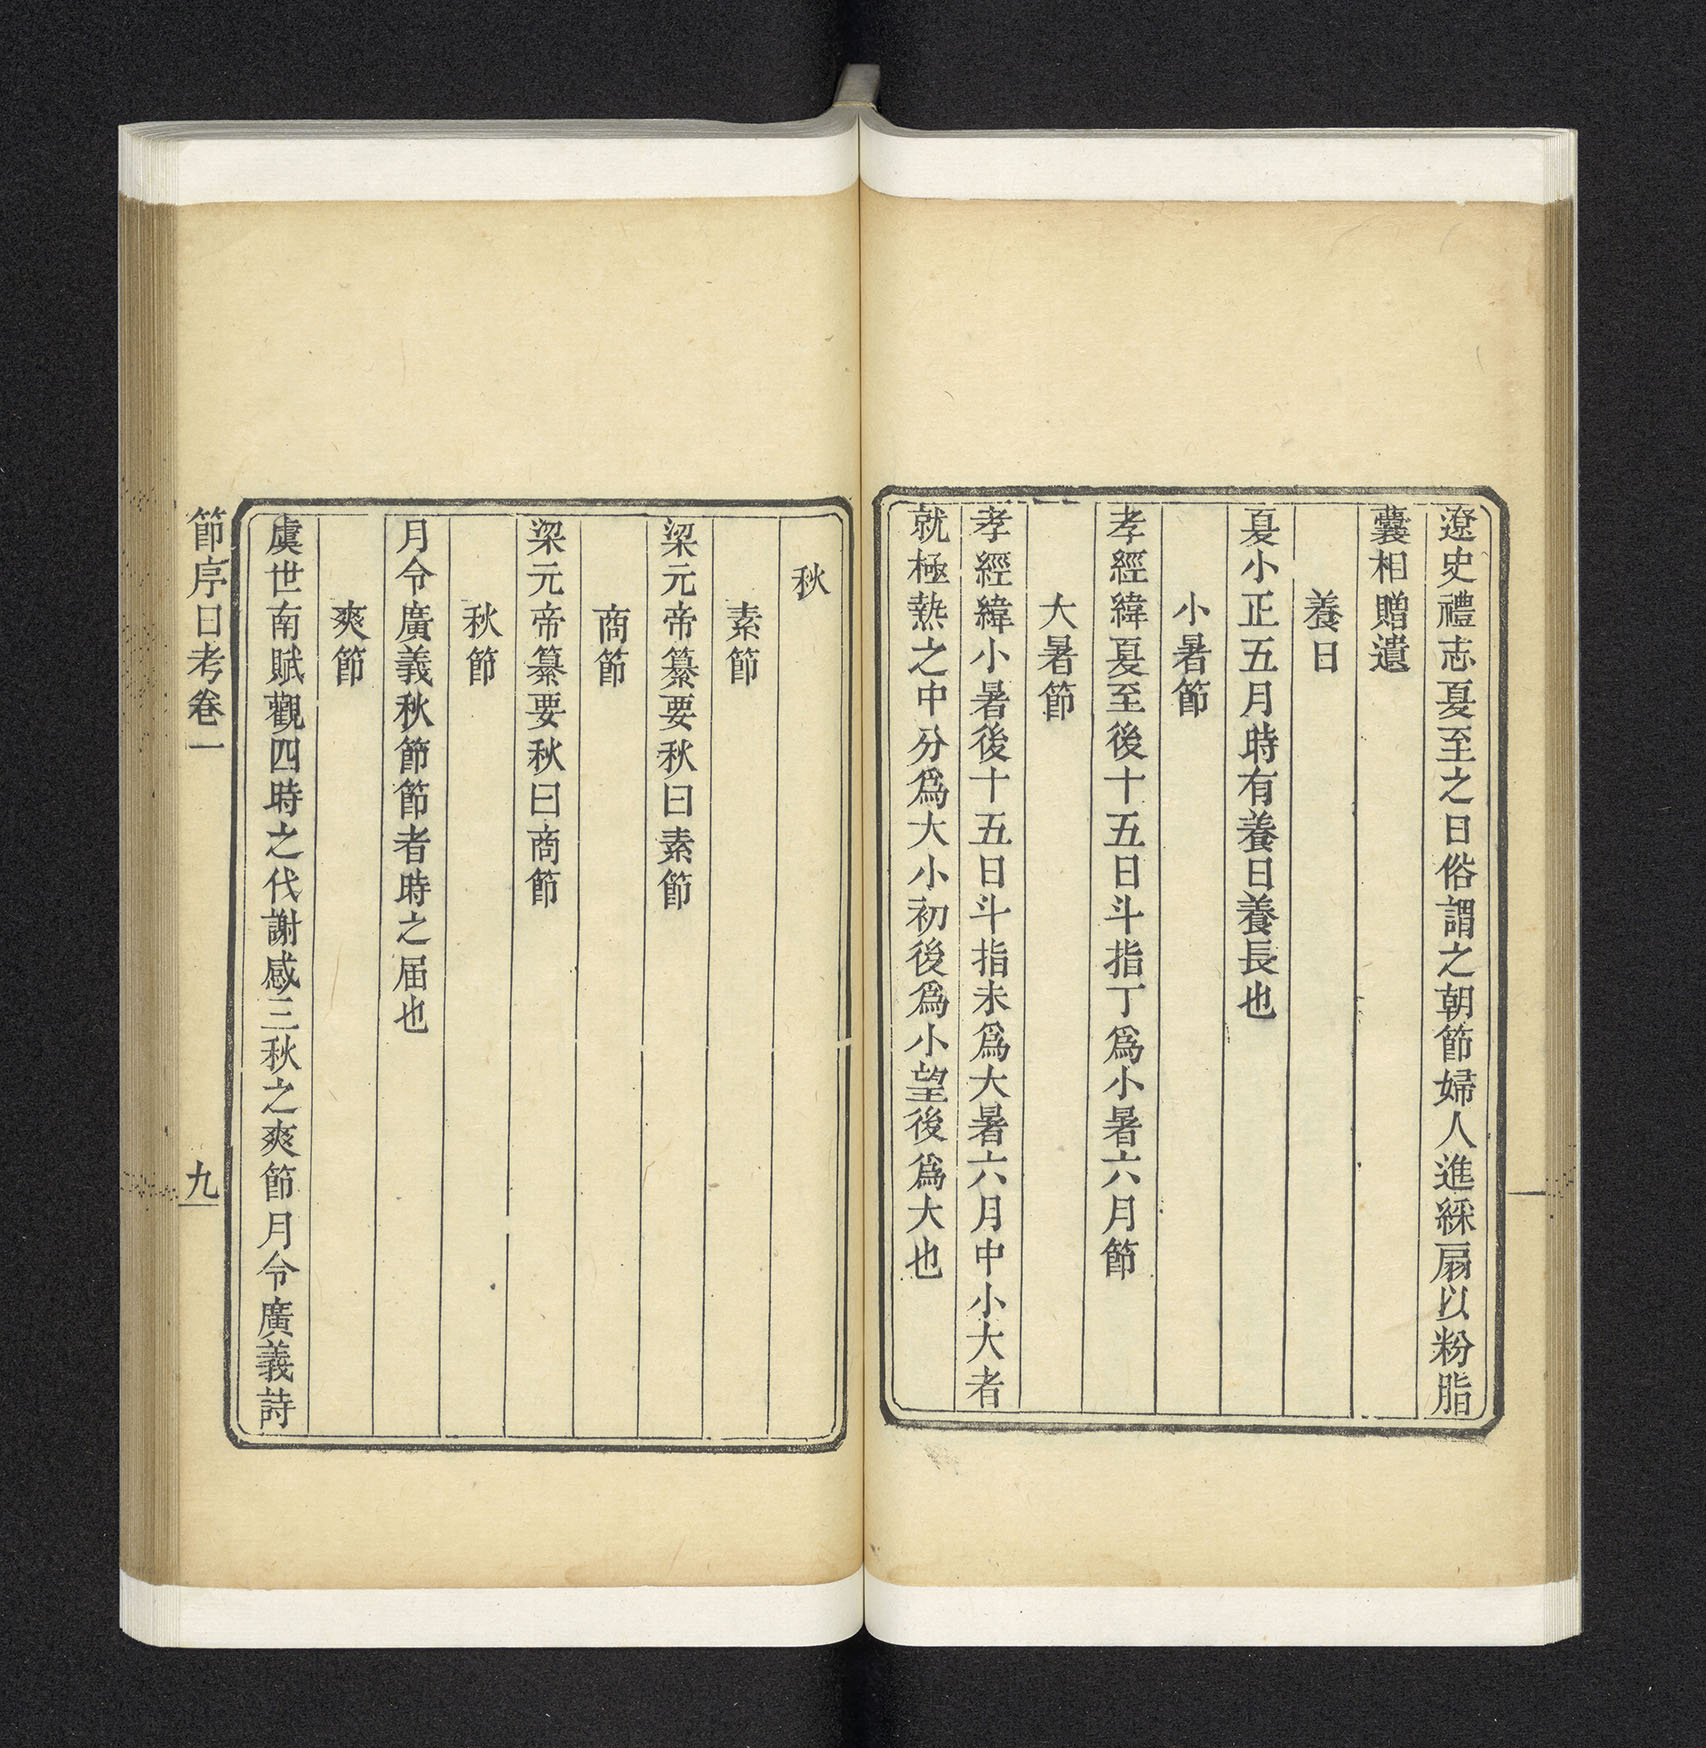 遼史禮志夏至之日俗謂之朝節婦人進綵扇以粉脂
囊相贈遺
養日
夏小正五月時有養日養長也
小暑節
孝經緯夏至後十五日斗指丁爲小暑六月節
大暑節
孝經緯小暑後十五日斗指未爲大暑六月中小大者
就極熱之中分爲大小初後爲小望後爲大也
秋
素節
梁元帝纂要秋曰素節
商節
梁元帝纂要秋曰商節
秋節
月令廣義秋節節者時之届也
爽節
虞世南賦觀四時之代謝感三秋之爽節月令廣義詩
節序日考卷一
九